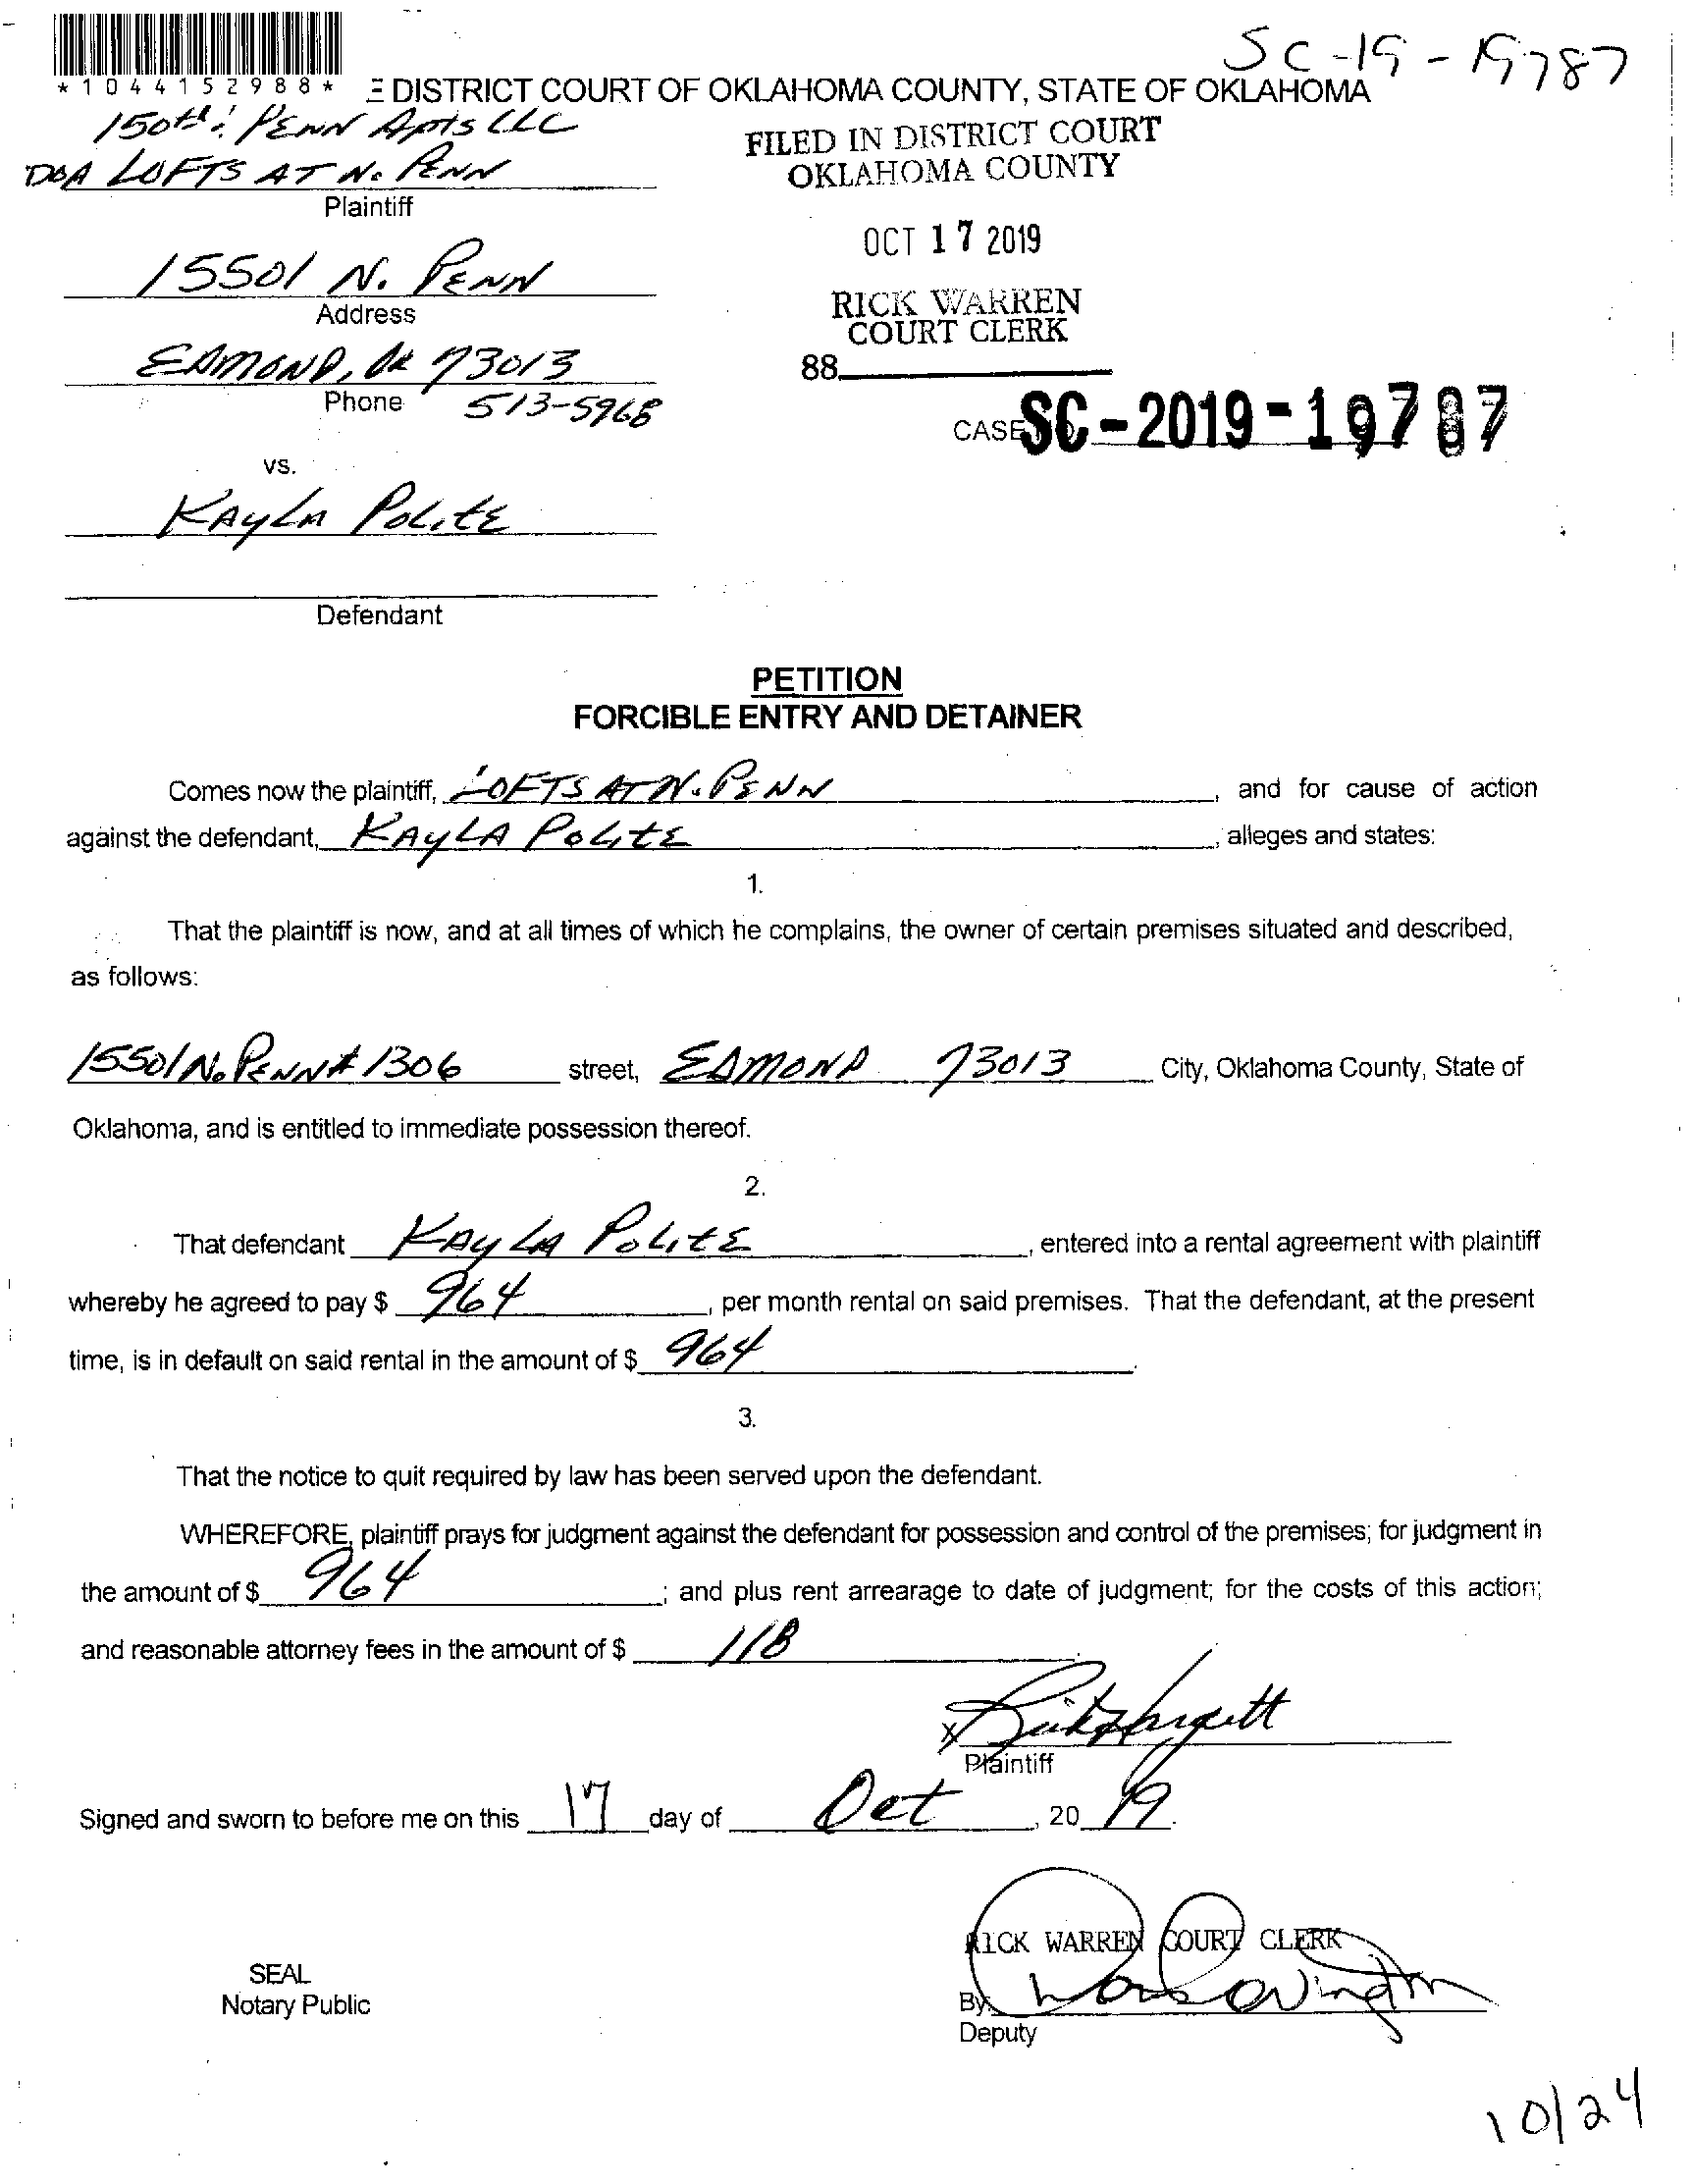 SC-19-19787
*1044152988*
E DISTRICT COURT OF OKLAHOMA COUNTY, STATE OF OKLAHOMA
150th & PENN Apts LLC
DBA LOFTS AT N. PENN
Plaintiff
FILED IN DISTRICT COURT
OKLAHOMA COUNTY
OCT 17 2019
15501 N. PENN
Address
RICK WARREN
COURT CLERK
EDMOND, OK 73013
88
Phone 513-5968
CASE SC-2019-19787
vs.
KAYLA POLITE
Defendant
PETITION
FORCIBLE ENTRY AND DETAINER
Comes now the plaintiff, LOFTS AT N. PENN, and for cause of action
against the defendant, KAYLA POLITE, alleges and states:
1.
That the plaintiff is now, and at all times of which he complains, the owner of certain premises situated and described,
as follows:
15501 N. PENN # 1306 street, EDMOND 73013 City, Oklahoma County, State of
Oklahoma, and is entitled to immediate possession thereof.
2.
That defendant KAYLA POLITE, entered into a rental agreement with plaintiff
whereby he agreed to pay $ 964, per month rental on said premises. That the defendant, at the present
time, is in default on said rental in the amount of $ 964.
3.
That the notice to quit required by law has been served upon the defendant.
WHEREFORE, plaintiff prays for judgment against the defendant for possession and control of the premises; for judgment in
the amount of $ 964; and plus rent arrearage to date of judgment; for the costs of this action;
and reasonable attorney fees in the amount of $ 118.
X
Plaintiff
Signed and sworn to before me on this 17 day of Oct, 20 19.
RICK WARREN COURT CLERK
SEAL
Notary Public
By
Deputy
10/24